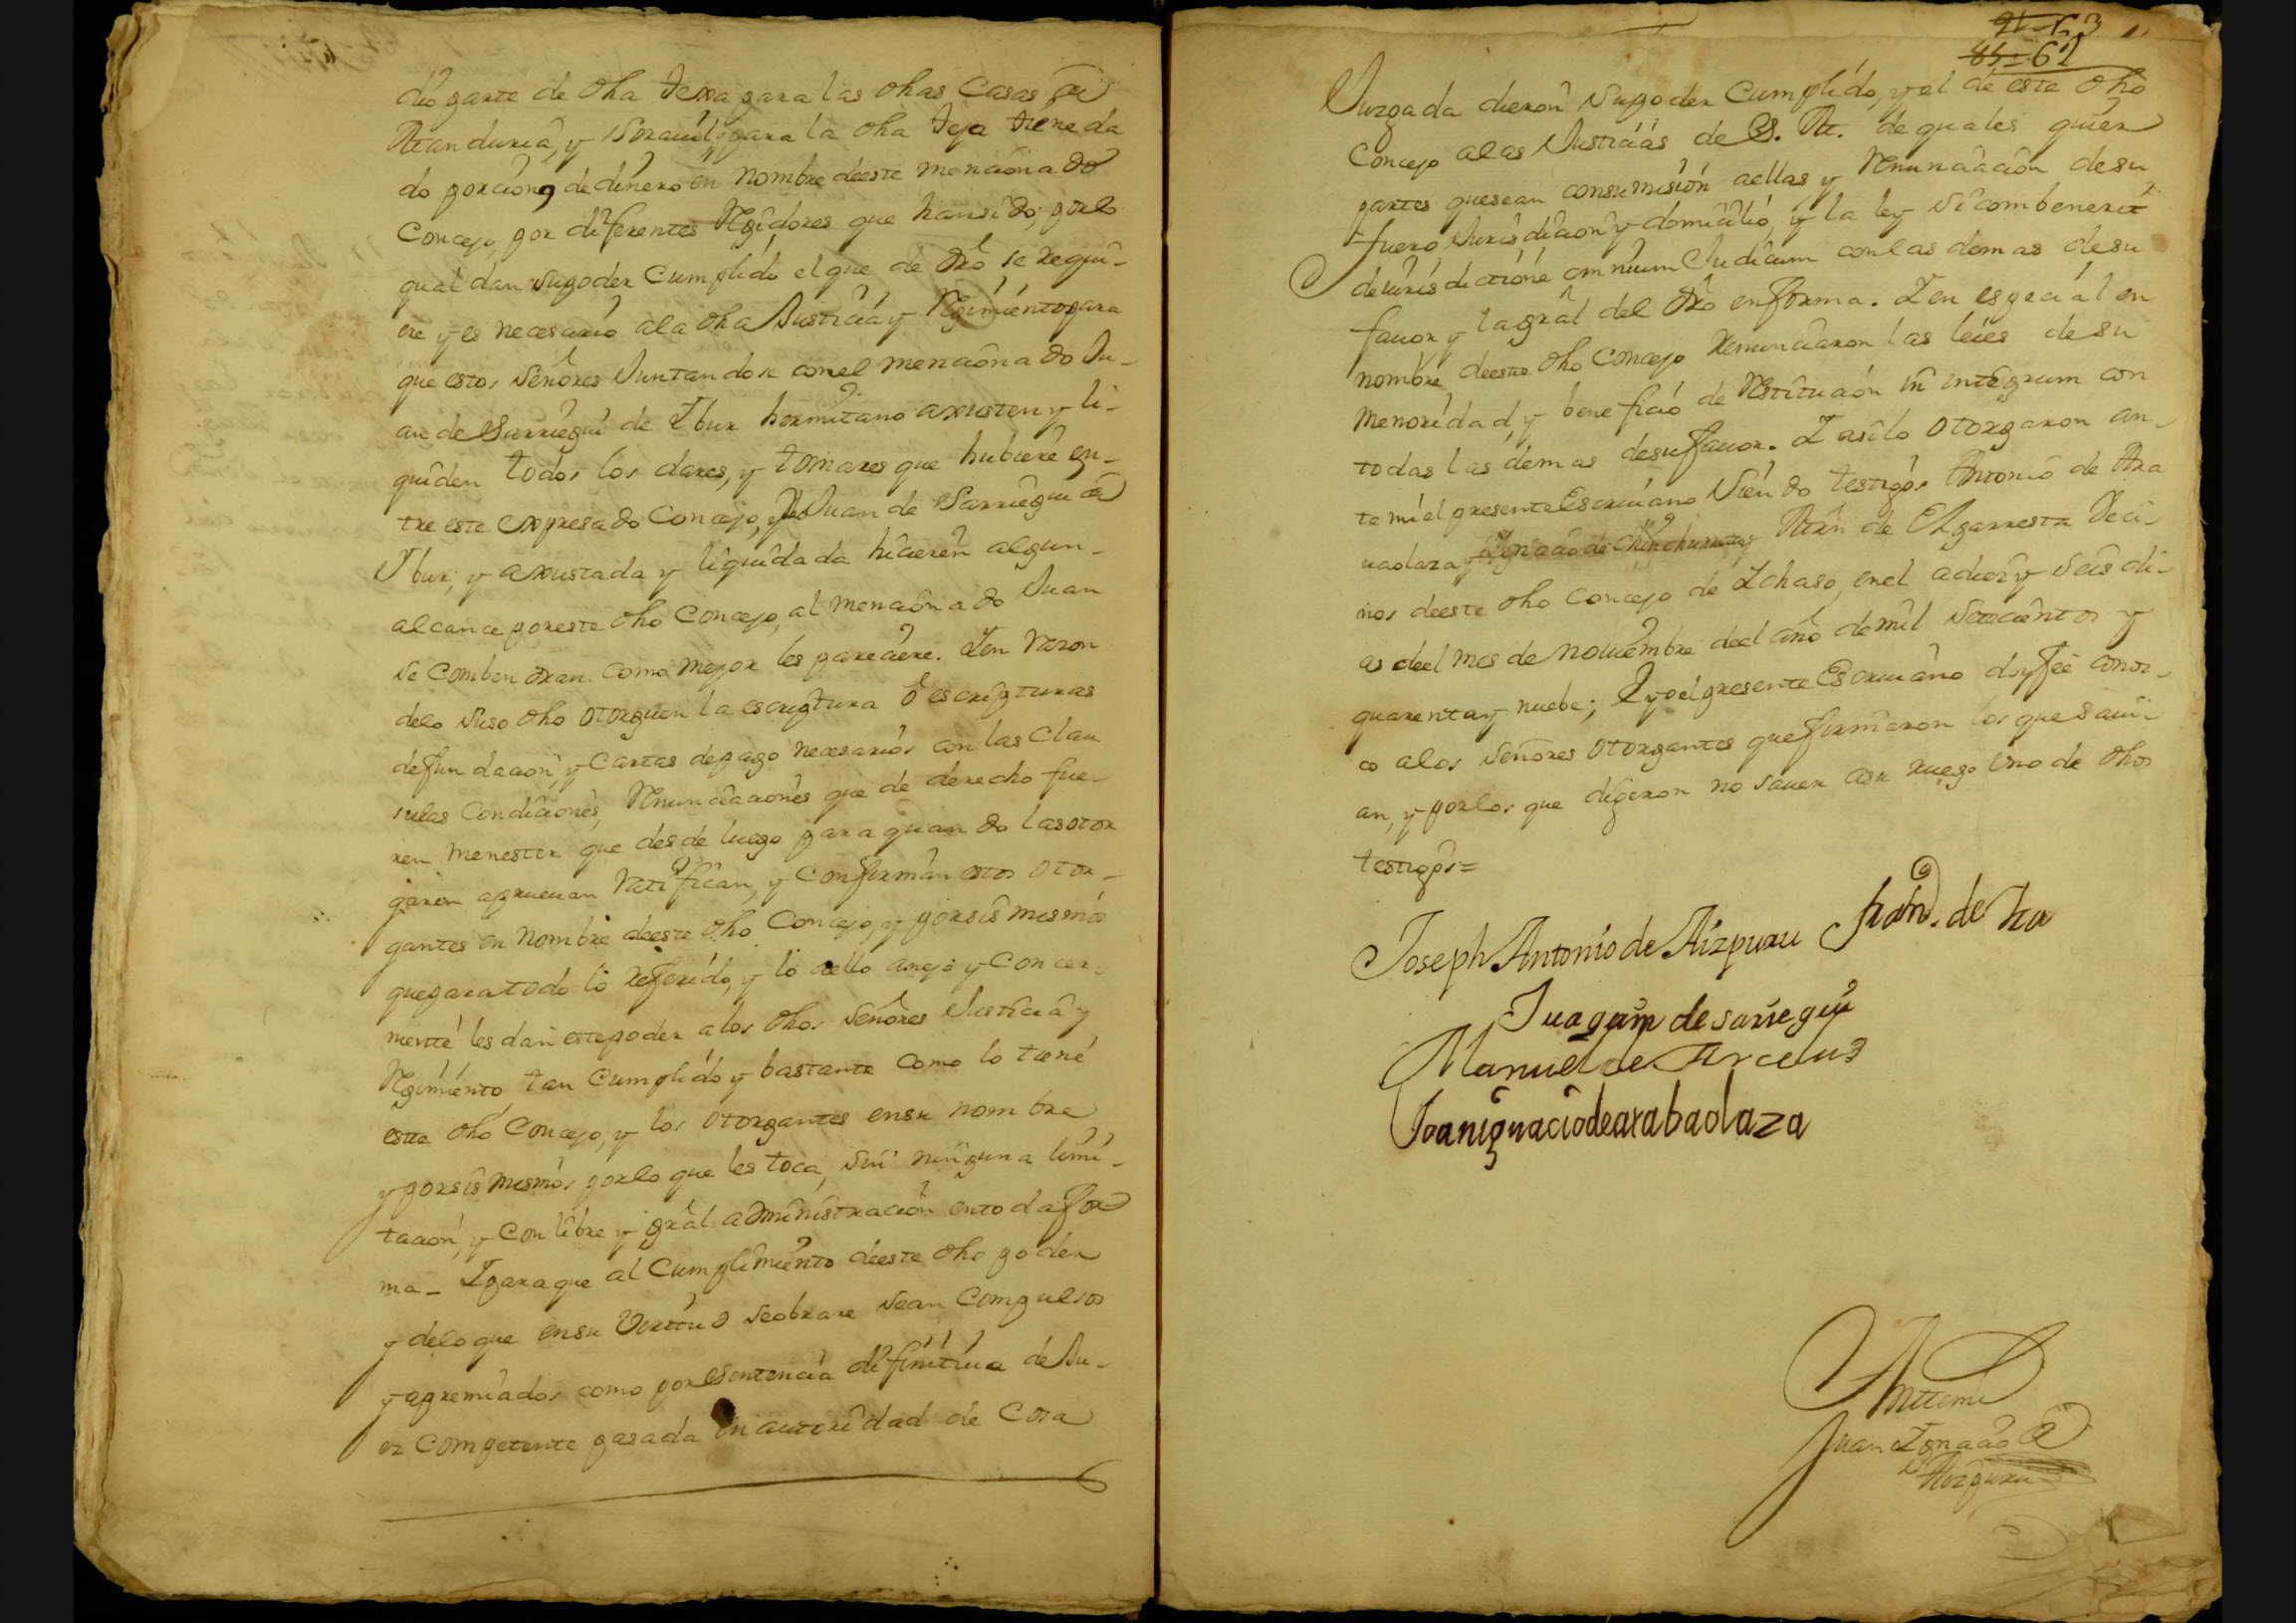 dio parte de dha texa para las dhas Casas de
y para la dha teja tiene da
do porcion de dinero en nombre deeste mencionado
Concejo, por diferentes Regidores que hansido; porlo
qual dan supoder Cumplido el que de dro se requi-
ere y es necesario ala dha Justicia y Regimiento para
que estos señores Juntandose conel mencionado Ju-
an de Sarriegui de Ibur hermitano axusten y li-
quiden todos los dares, y tomares que hubiere en-
tre este expresado Concejo, y Juan de Sarriegui de
Ibur; y axustada y liquidada hicieren algun
alcance poreste dho Concejo, al mencionado Juan
se combendran como mejor les pareciere. Yen razon
delo suso dho otorguen la escriptura ô escripturas
defundacion, y Cartas depago necesarios con las Clau
sulas Condiciones, Renunciaciones que de derecho fue-
ren menester que desde luego para quando las otor
garen aprueuan ratifican, y confirman estos otor-
gantes en nombre deeste dho Concejo, y porsis mismos
quepara todo lo referido, y lo aello anejo y concer-
mente les dan estepoder alos dhos señores Justicia y
Regimiento, tan Cumplido y bastante como lo tiene
este dho Concejo, y los otorgantes ensu nombre
y porsis mismos porlo que les toca, sin ninguna limi-
tacion, y con libre y gral administracion entodafor
ma - Yparaque al Cumplimiento deeste dho poder
y deloque ensu Virttud seobrare sean Compulsos
y apremiados como por sentencia difinitiua de Ju-
ez Competente pasada en autoridad de Cosa
85-62
Juzgada dieron supoder Cumplido, y el de este dho
Concejo alas Justicias de S. M. de quales quier
partes quesean consumision aellas y Renunciacion desu
fuero Jurisdicion y domicilio, y la ley sicombenerit
deiurisdictione omnium Judicum conlas demas desu
fauor y lagral del dro enforma. Yen especial en
nombre deeste dho Concejo renunciaron las leies desu
menoridad, y beneficio de Restitucion in integrum con
todas las demas desufauor. Y asilo otorgaron an-
temi el presente Escriuano siendo testigos Antonio de Ara
uaolaza y Ignacio de Chinchurreta y Mrn de Elgarresta Veci-
nos deeste dho Concejo de Ichaso, enel adiez y seis di-
as deel mes de nouiembre deel año demil setecientos y
quarenta y nuebe; Y yoel presente Escriuano doyfee conoz-
co alos señores otorgantes que firmaron los que saui-
an, y porlos que digeron no sauer asu ruego Uno de dhos
testigos=
Joseph Antonio de Aizpuru
Juaquin de sariegui
Manuel de Arcelus
Joanignaciodearabaolaza
Anttemi
Juan Ignacio de
Aizpuru